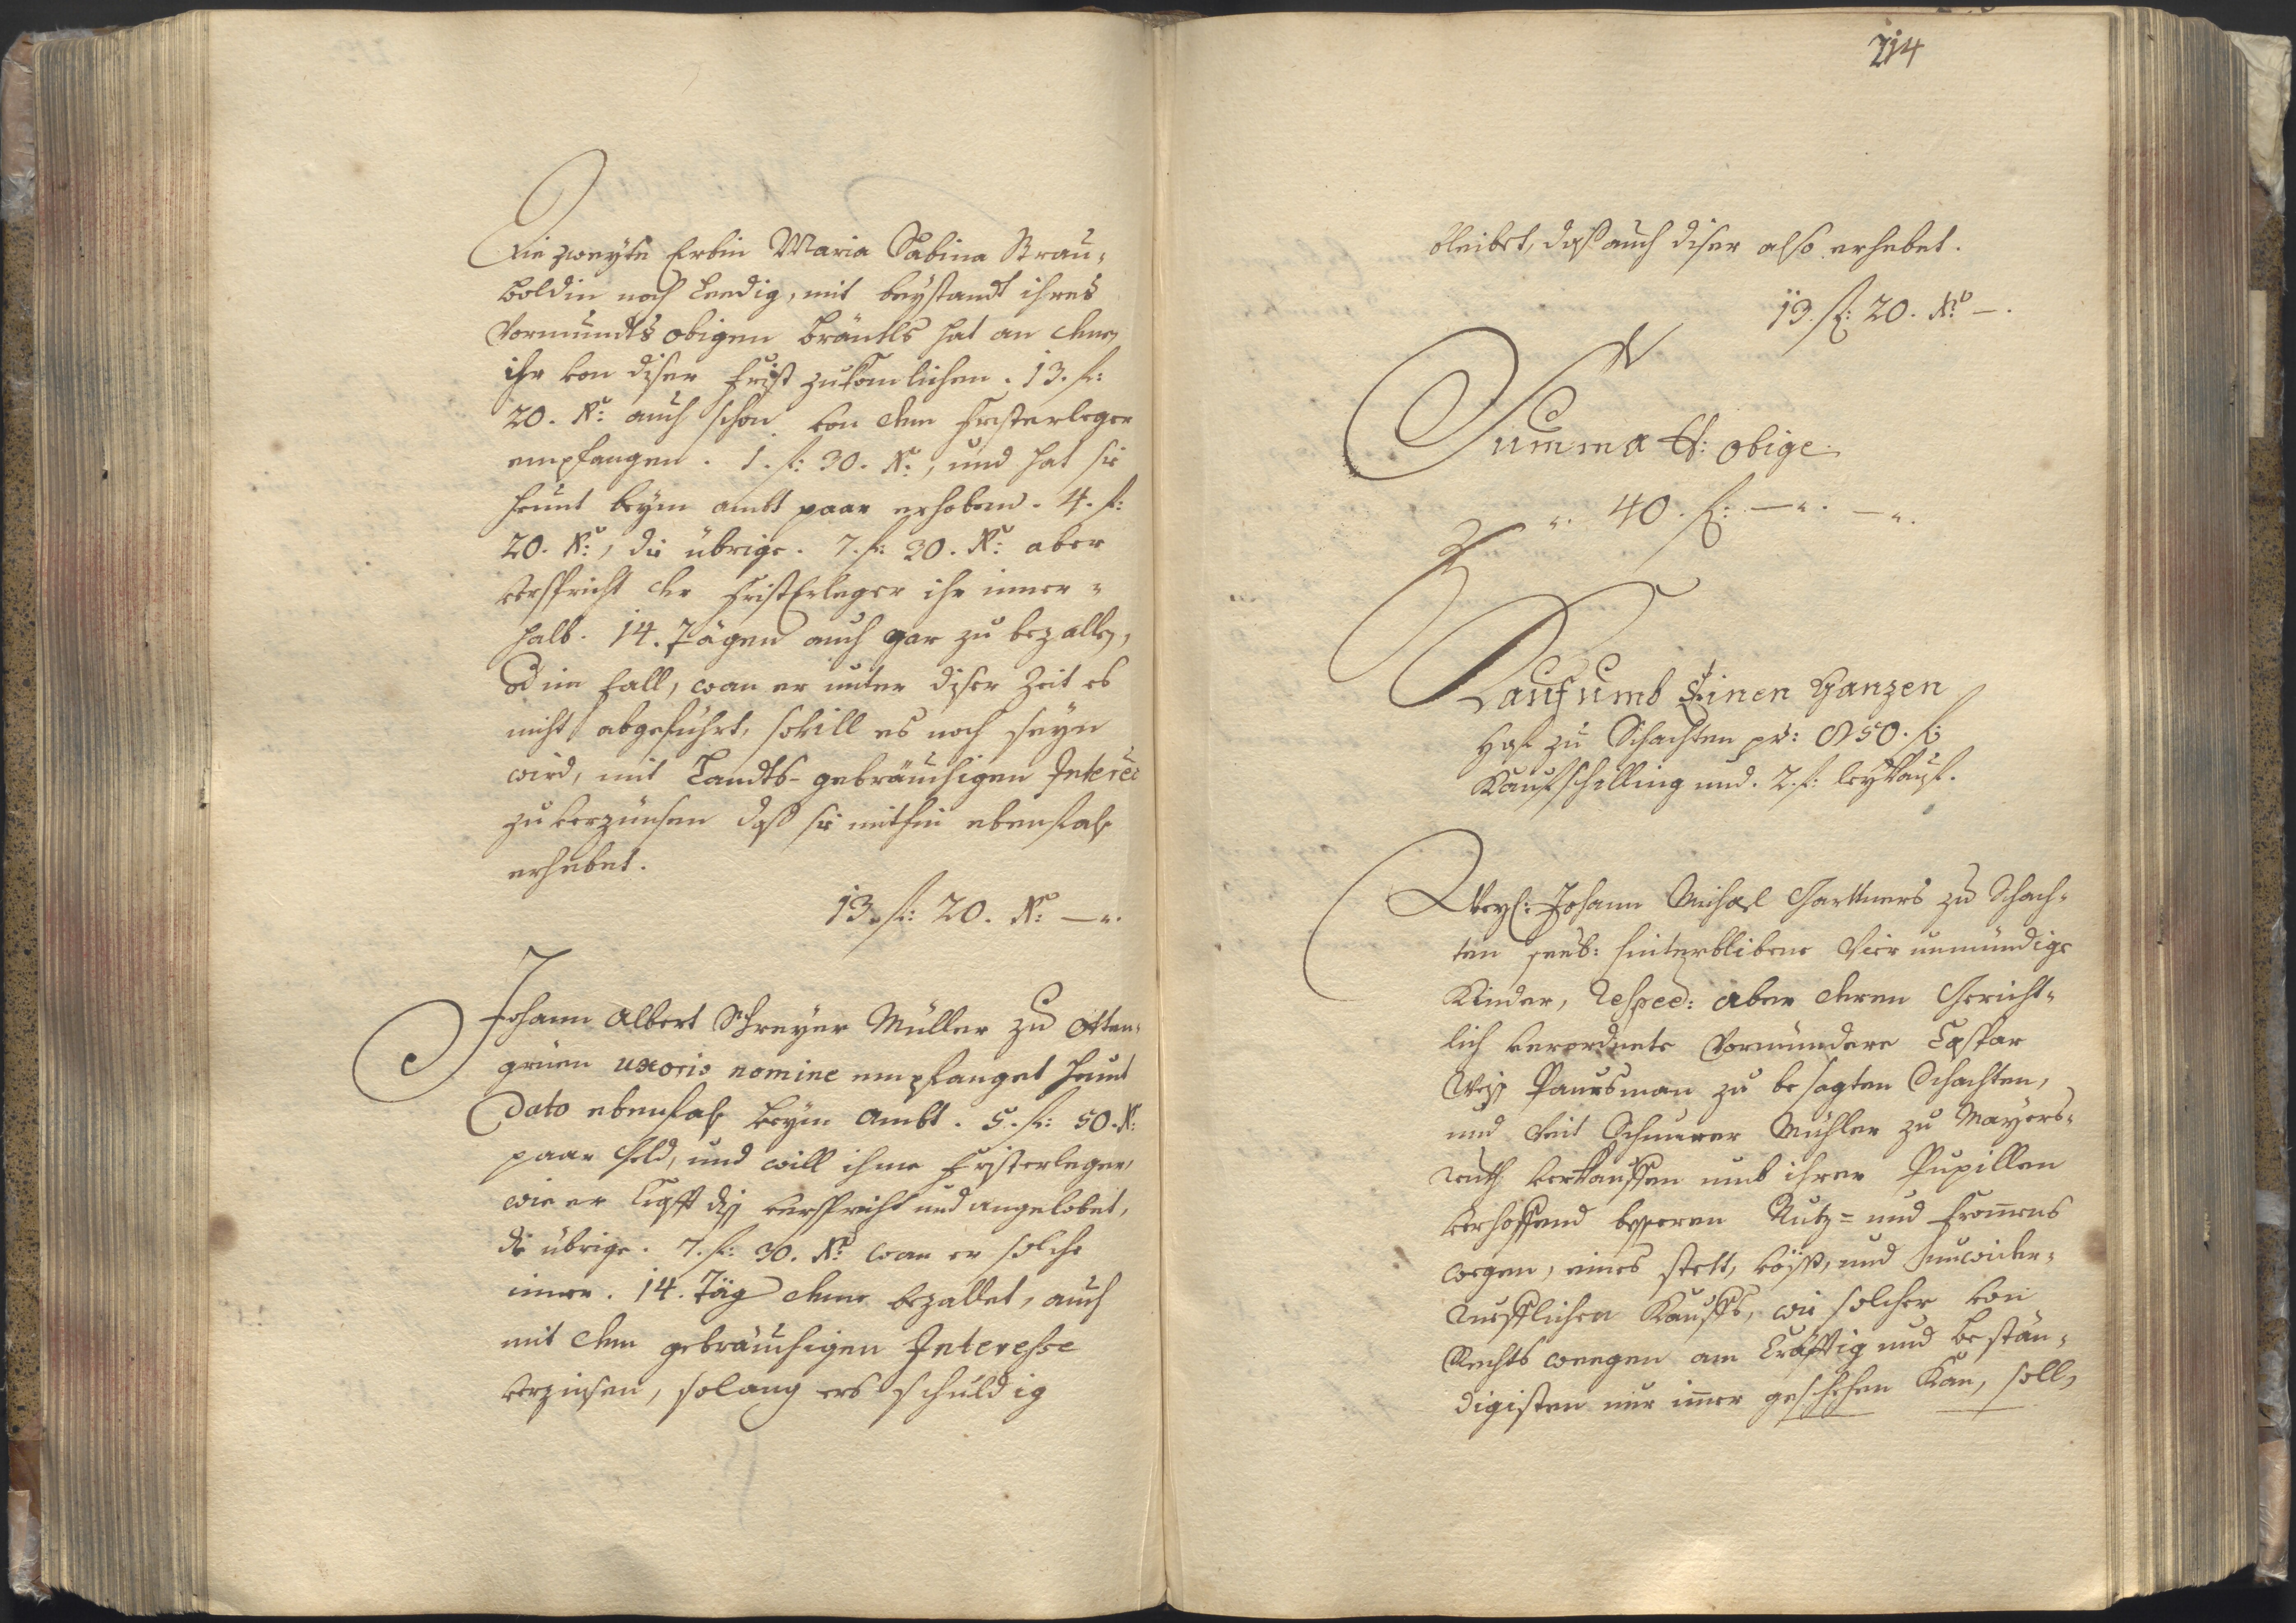 Die zweyte Erbin Maria Sabina Strau=
boldin noch Leedig, mit beystandt ihres
Vormundts obigen Bräutls hat an denen
ihr von diser Frist zukomlichen . 13. fl:
20. Kr: auch schon von dem Fristerleger
empfangen . 1. fl: 30. Kr:, und hat sie
heunt beym ambt paar erhoben . 4. fl:
20. Kr:, die übrige . 7. fl: 30. Kr: aber
verspricht der FristErleger ihr inner=
halb . 14. Tägen auch gar zu bezallen,
od im fall, wan er unter diser Zeit es
nicht abgeführt, sovill es noch seyn
wird, mit Landts-gebräuchigen Intere
zu verzünsen daß sie mithin ebenfals
erhebet.
13. fl: 20. Kr: —".
Johann Albert Schreyer Müller zu Otten=
grüen uxoris nomine empfanget heunt
Dato ebenfals beym Ambt . 5. fl: 50. Kr:
paar Geld, und will ihme Fristerleger,
wie er Crafft diß verspricht und angelobet,
die übrige . 7. fl: 30. Kr: wan er solche
inner . 14. Täg deme bezallet, auch
mit dem gebräuchigen Interesse
verzinsen, solang ers schuldig
214
bleibet, daß auch diser also erhebet.
13. fl: 20. Kr: —.
Summa obige
". 40. fl: —". —".
Kauf umb Einen Ganzen
Hof zu Schachten pr: 850. fl:
Kaufschilling und . 2. fl: leykauf.
Weyl: Johann Michael Garttners zu Schach=
ten seel: hinterblibene Vier unmündige
Kinder, Respec: aber deren Gericht=
lich verordnete Vormündere Caspar
Weiß Paursman zu besagten Schachten,
und Veit Schnurer Mühler zu Mayers=
reuth verkauffen umb ihrer Pupillen
verhoffend besseren Nutz= und Frommens
wegen, eines stett, vöst, und unwider=
ruefflichen Kauffs, wie solcher von
Rechts weegen am Cräfftig und bestän=
digisten nur imer geschehen Kan, soll,